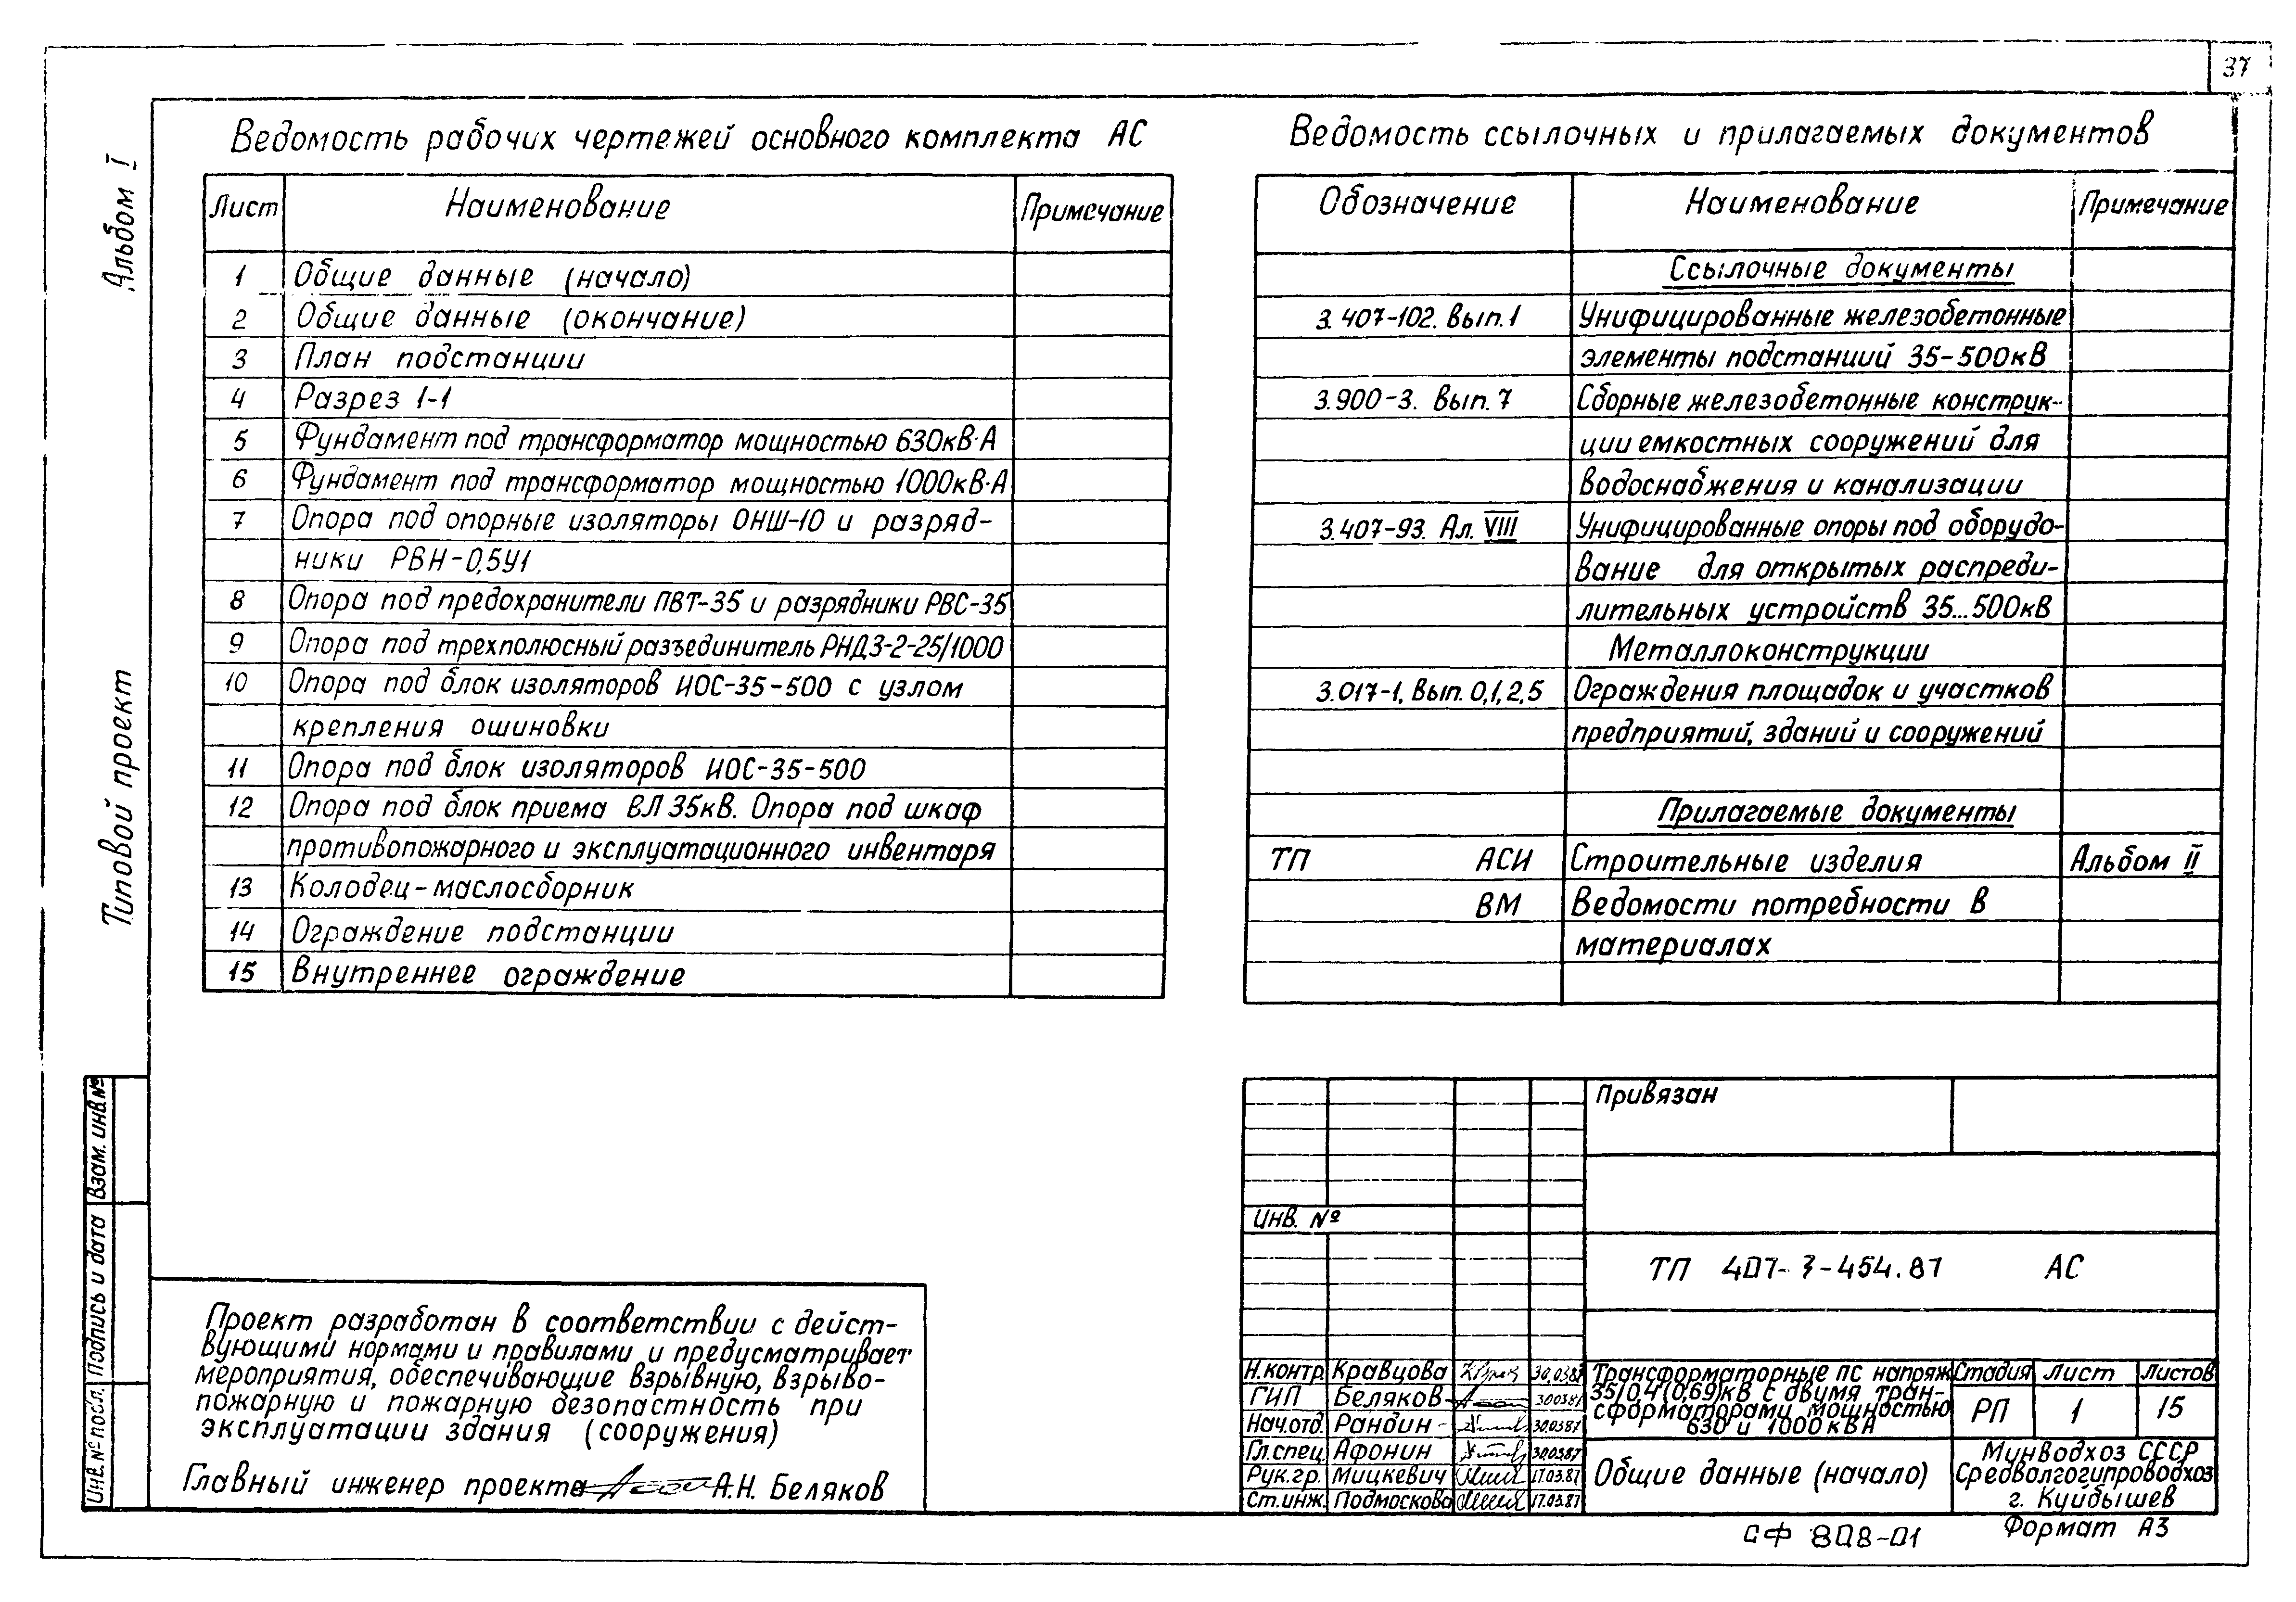 37
Альбом I
Типовой проект
Ведомость рабочих чертежей основного комплекта АС
Лист Наименование Примечание
1 Общие данные (начало)
2 Общие данные (окончание)
3 План подстанции
4 Разрез 1-1
5 Фундамент под трансформатор мощностью 630кВ·А
6 Фундамент под трансформатор мощностью 1000кВ·А
7 Опора под опорные изоляторы ОНШ-10 и разряд-
ники РВН-0,5У1
8 Опора под предохранители ПВТ-35 и разрядники РВС-35
9 Опора под трехполюсный разъединитель РНДЗ-2-25/1000
10 Опора под блок изоляторов ИОС-35-500 с узлом
крепления ошиновки
11 Опора под блок изоляторов ИОС-35-500
12 Опора под блок приема ВЛ 35кВ. Опора под шкаф
противопожарного и эксплуатационного инвентаря
13 Колодец-маслосборник
14 Ограждение подстанции
15 Внутреннее ограждение
Ведомость ссылочных и прилагаемых документов
Обозначение Наименование Примечание
Ссылочные документы
3.407-102. Вып.1 Унифицированные железобетонные
элементы подстанций 35-500кВ
3.900-3. Вып.7 Сборные железобетонные конструк-
ции емкостных сооружений для
водоснабжения и канализации
3.407-93. Ал. VIII Унифицированные опоры под оборудо-
вание для открытых распреди-
лительных устройств 35...500кВ
Металлоконструкции
3.017-1, Вып. 0,1,2,5 Ограждения площадок и участков
предприятий, зданий и сооружений
Прилагаемые документы
ТП АСИ Строительные изделия Альбом II
ВМ Ведомости потребности в
материалах
Взам. инв.№
Подпись и дата
Инв.№ посл.
Проект разработан в соответствии с дейст-
вующими нормами и правилами и предусматривает
мероприятия, обеспечивающие взрывную, взрыво-
пожарную и пожарную безопастность при
эксплуатации здания (сооружения)
Главный инженер проекта А.Н. Беляков
Привязан
Инв. №
ТП 407-3-454.87 АС
Н.контр. Кравцова 30.03.87
ГИП Беляков 30.03.87
Нач.отд. Рандин 30.03.87
Гл.спец. Афонин 30.03.87
Рук.гр. Мицкевич 17.03.87
Ст.инж. Подмоскова 17.03.87
Трансформаторные ПС напряж
35/0,4(0,69)кВ с двумя тран-
сформаторами мощностью
630 и 1000 кВА
Стадия Лист Листов
РП 1 15
Общие данные (начало)
Минводхоз СССР
Средволгогипроводхоз
г. Куйбышев
СФ 808-01
Формат А3